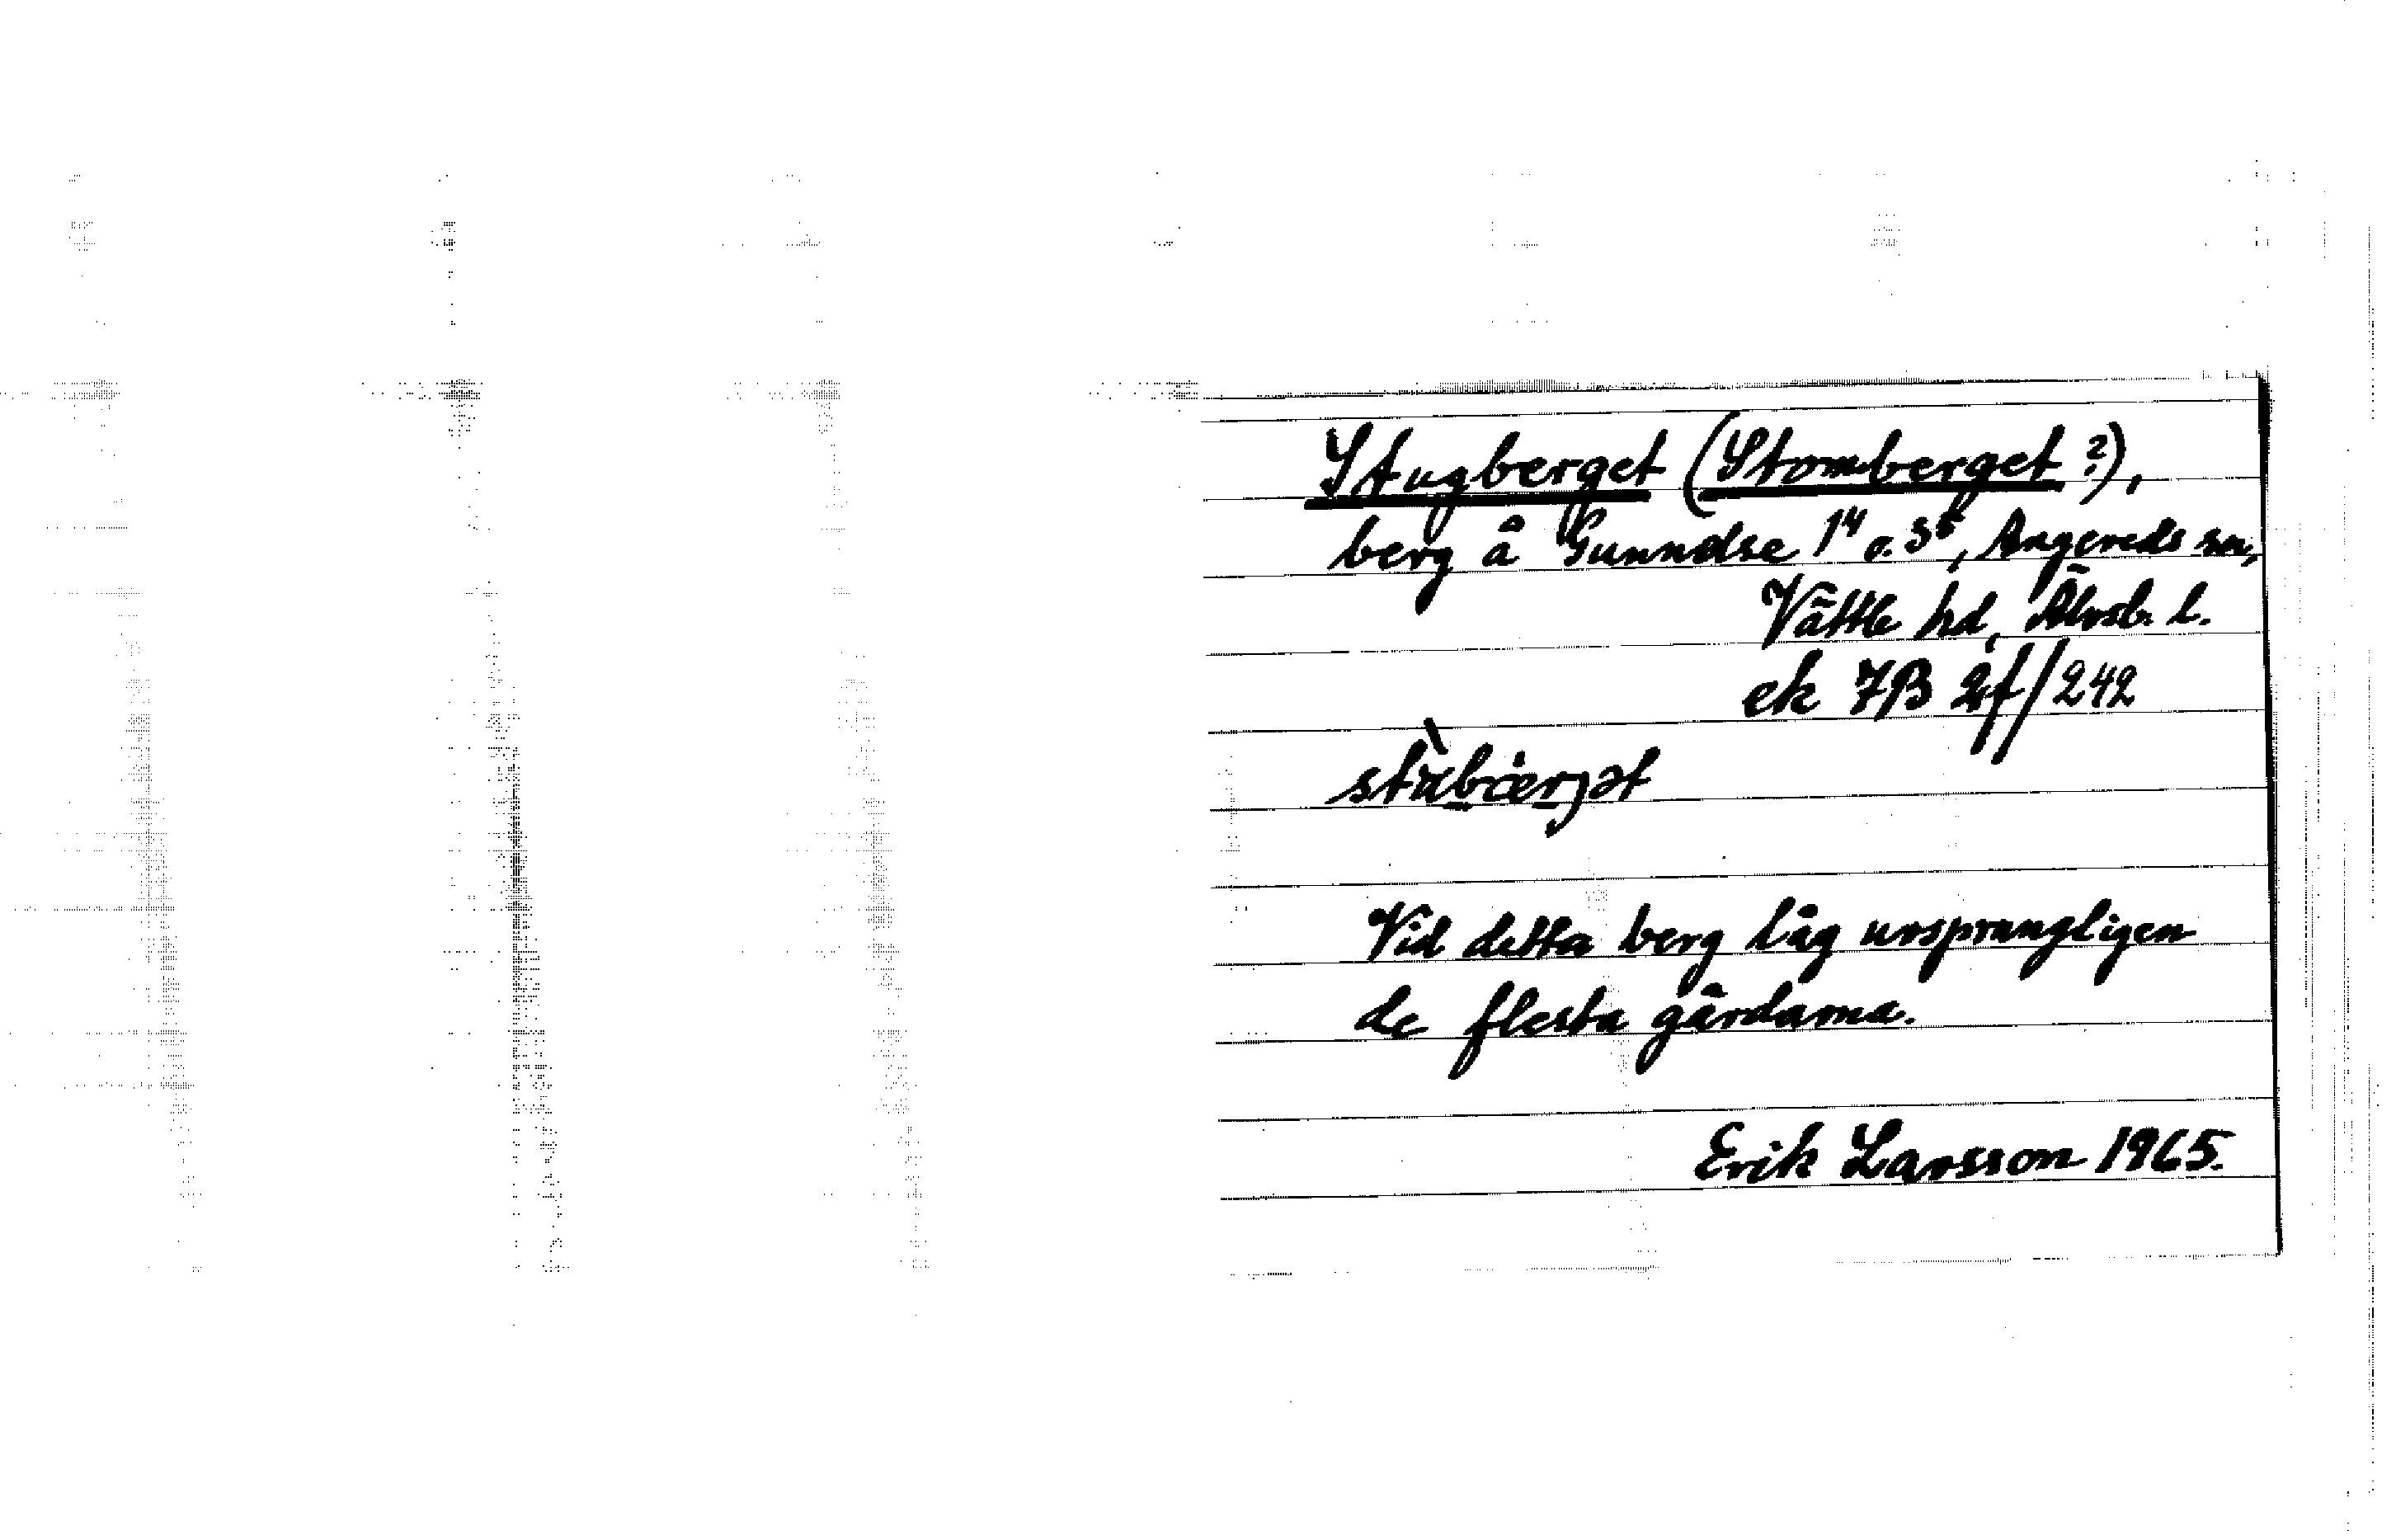 Stugberget (Stomberget?),
berg å Gunnilse 1⁴ o. 3⁵, Angereds sn,
Vättle hd, Älvsb. l.
ek 7B 2f/242
Vid detta berg låg ursprungligen
de flesta gårdarna.
Erik Larsson 1965.